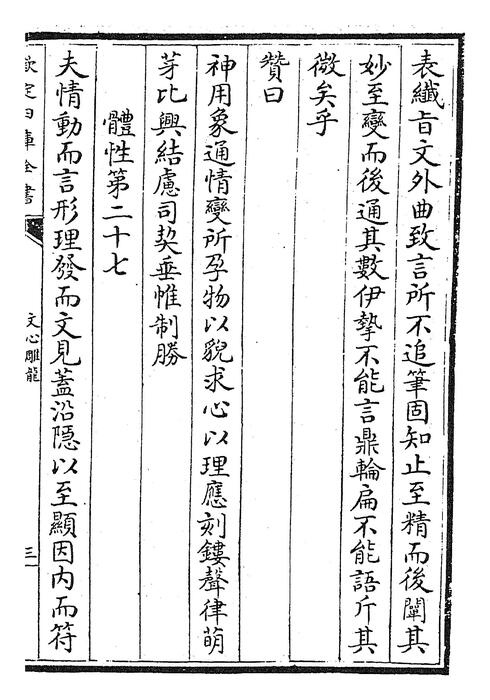 表纖旨文外曲致言所不追筆固知止至精而後闡其
妙至變而後通其數伊摯不能言鼎輪扁不能語斤其
微矣乎
贊曰
神用象通情變所孕物以貌求心以理應刻鏤聲律萌
芽比興結慮司契垂帷制勝
體性第二十七
夫情動而言形理發而文見蓋沿隱以至顯因内而符
欽定四庫全書
文心雕龍
三